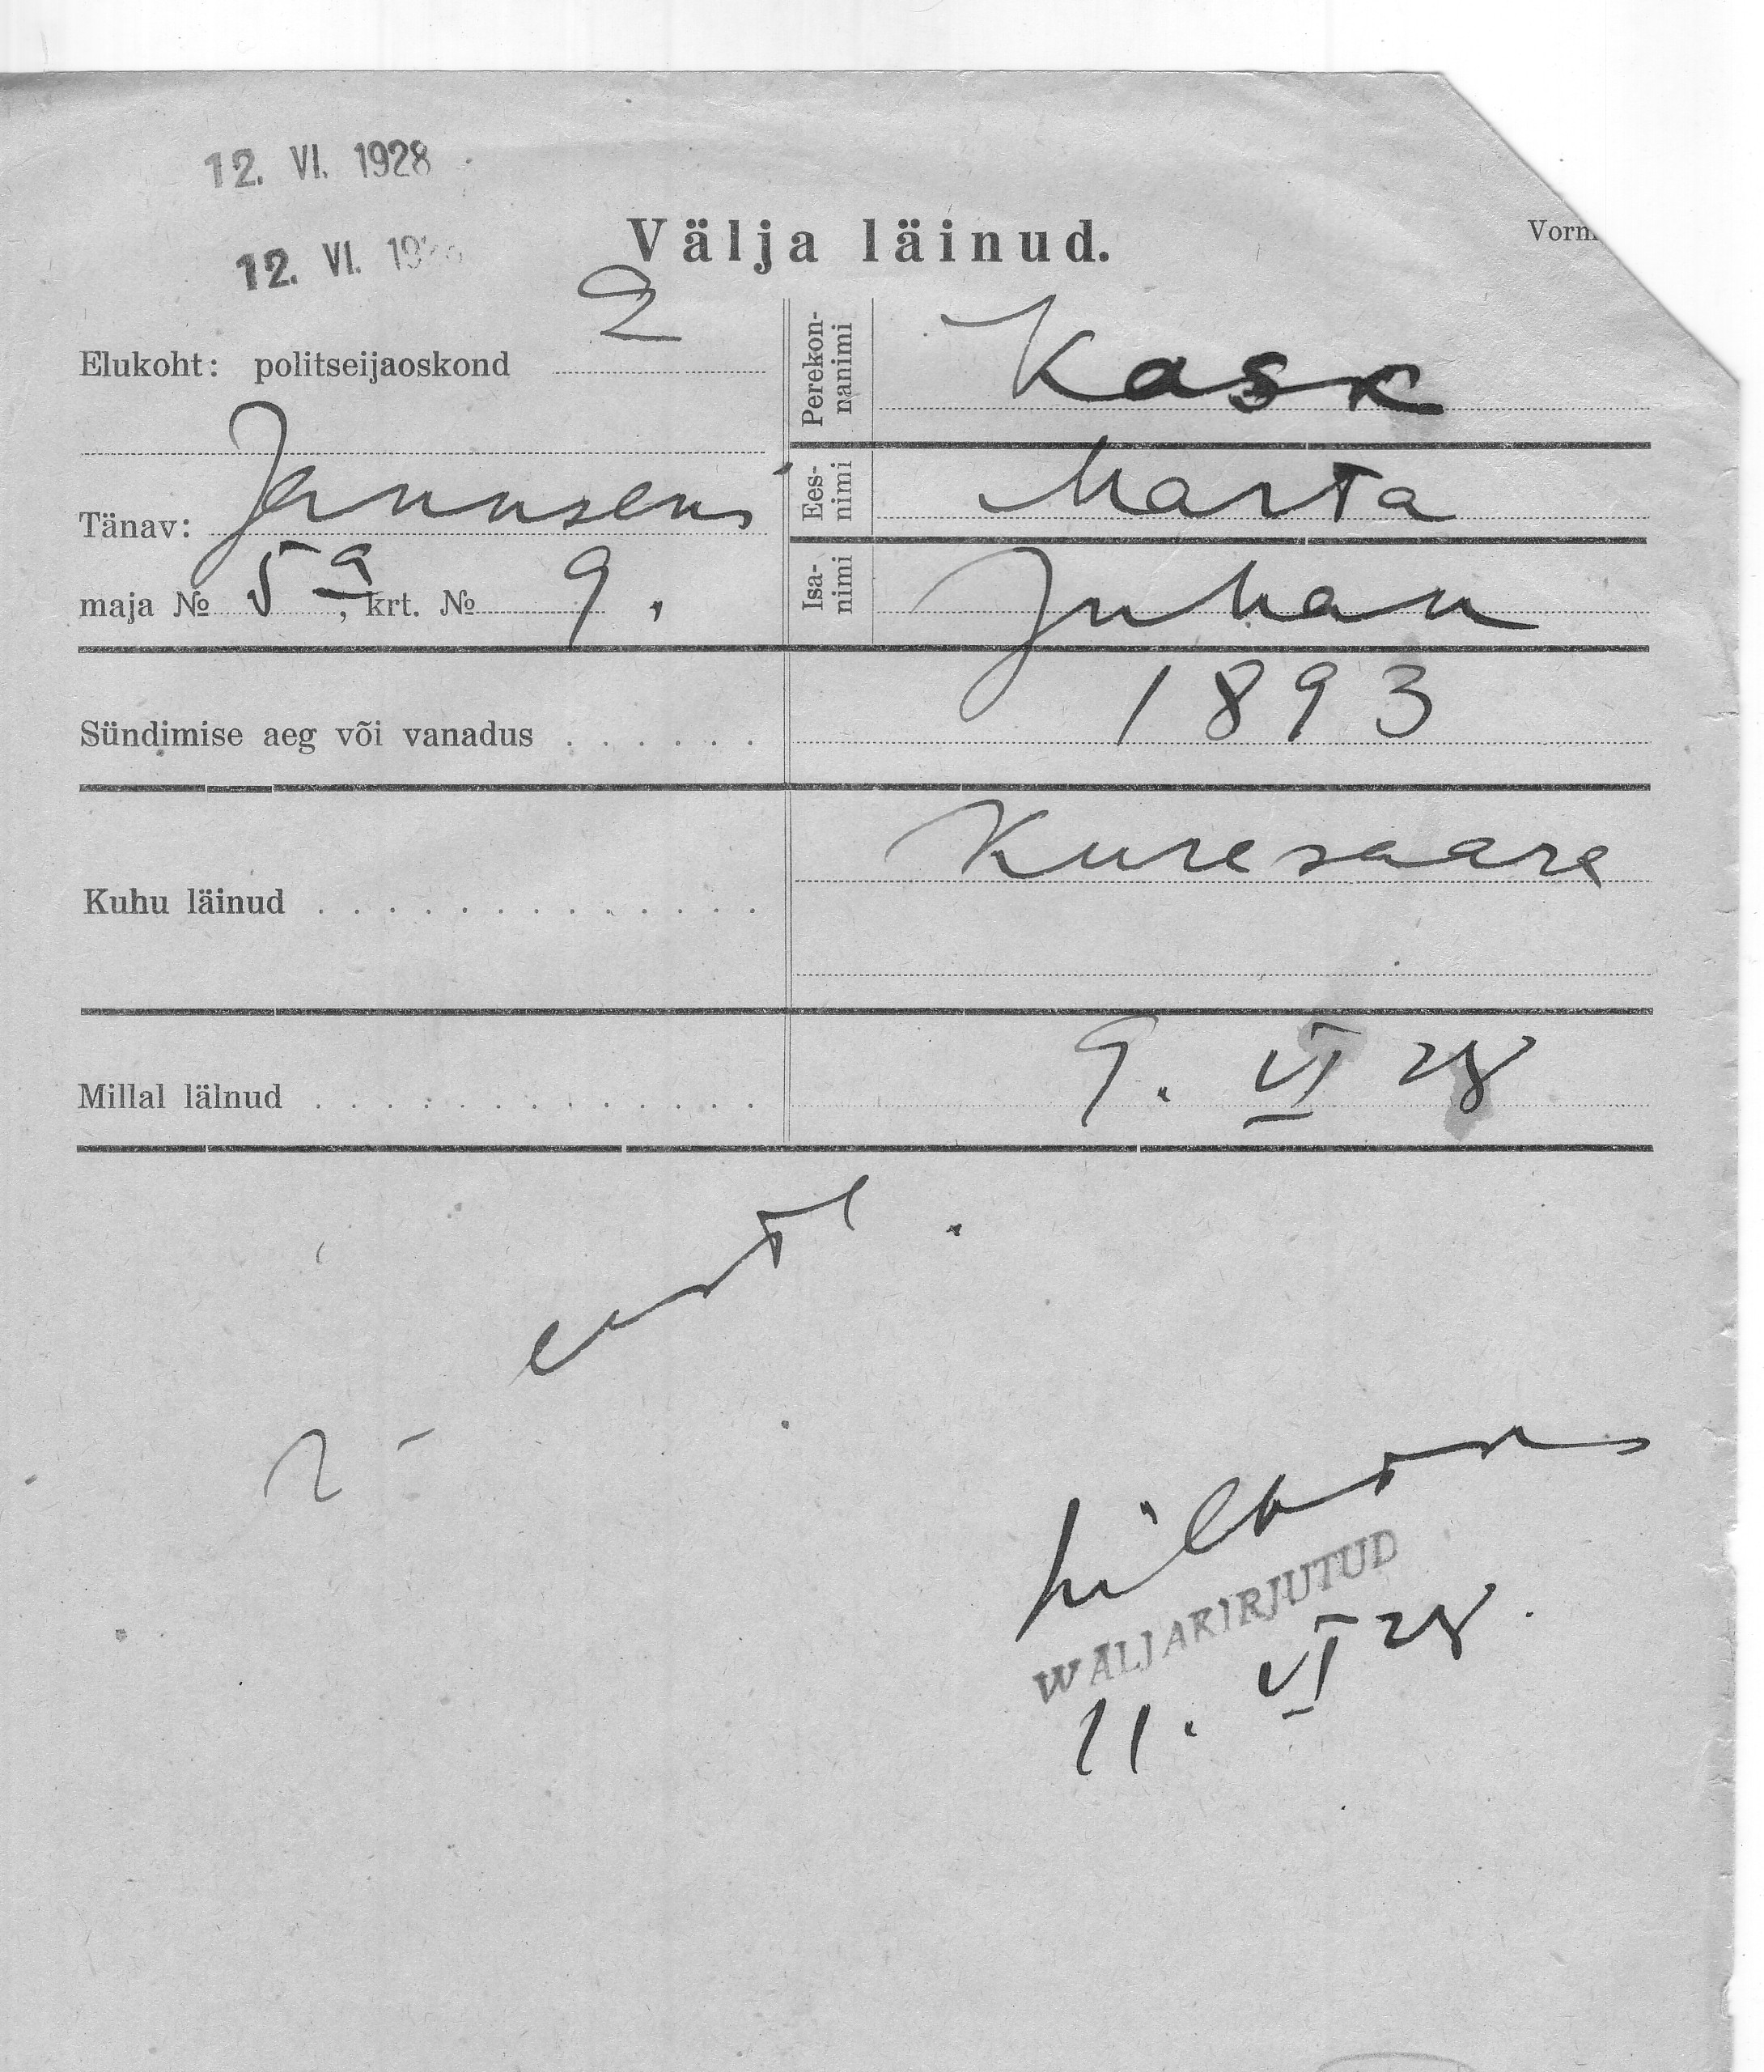 12. VI. 1928
12. VI. 192
Välja läinud.
Vorm
Elukoht: politseijaoskond 2
Tänav: Jannseni
maja № 5a, krt. № 9.
Perekon-
nanimi Kask
Ees-
nimi Marta
Isa-
nimi Juhan
Sündimise aeg või vanadus . . . . . . 1893
Kuhu läinud . . . . . . . . . . . . . Kuresaare
Millal läinud . . . . . . . . . . . . . 9. VI 28
WÄLJAKIRJUTUD
11. VI 28.